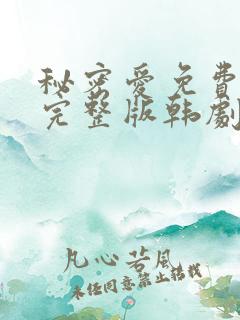 秘密爱免費
完整版韩劇
凡心若风
未经同意禁止转载